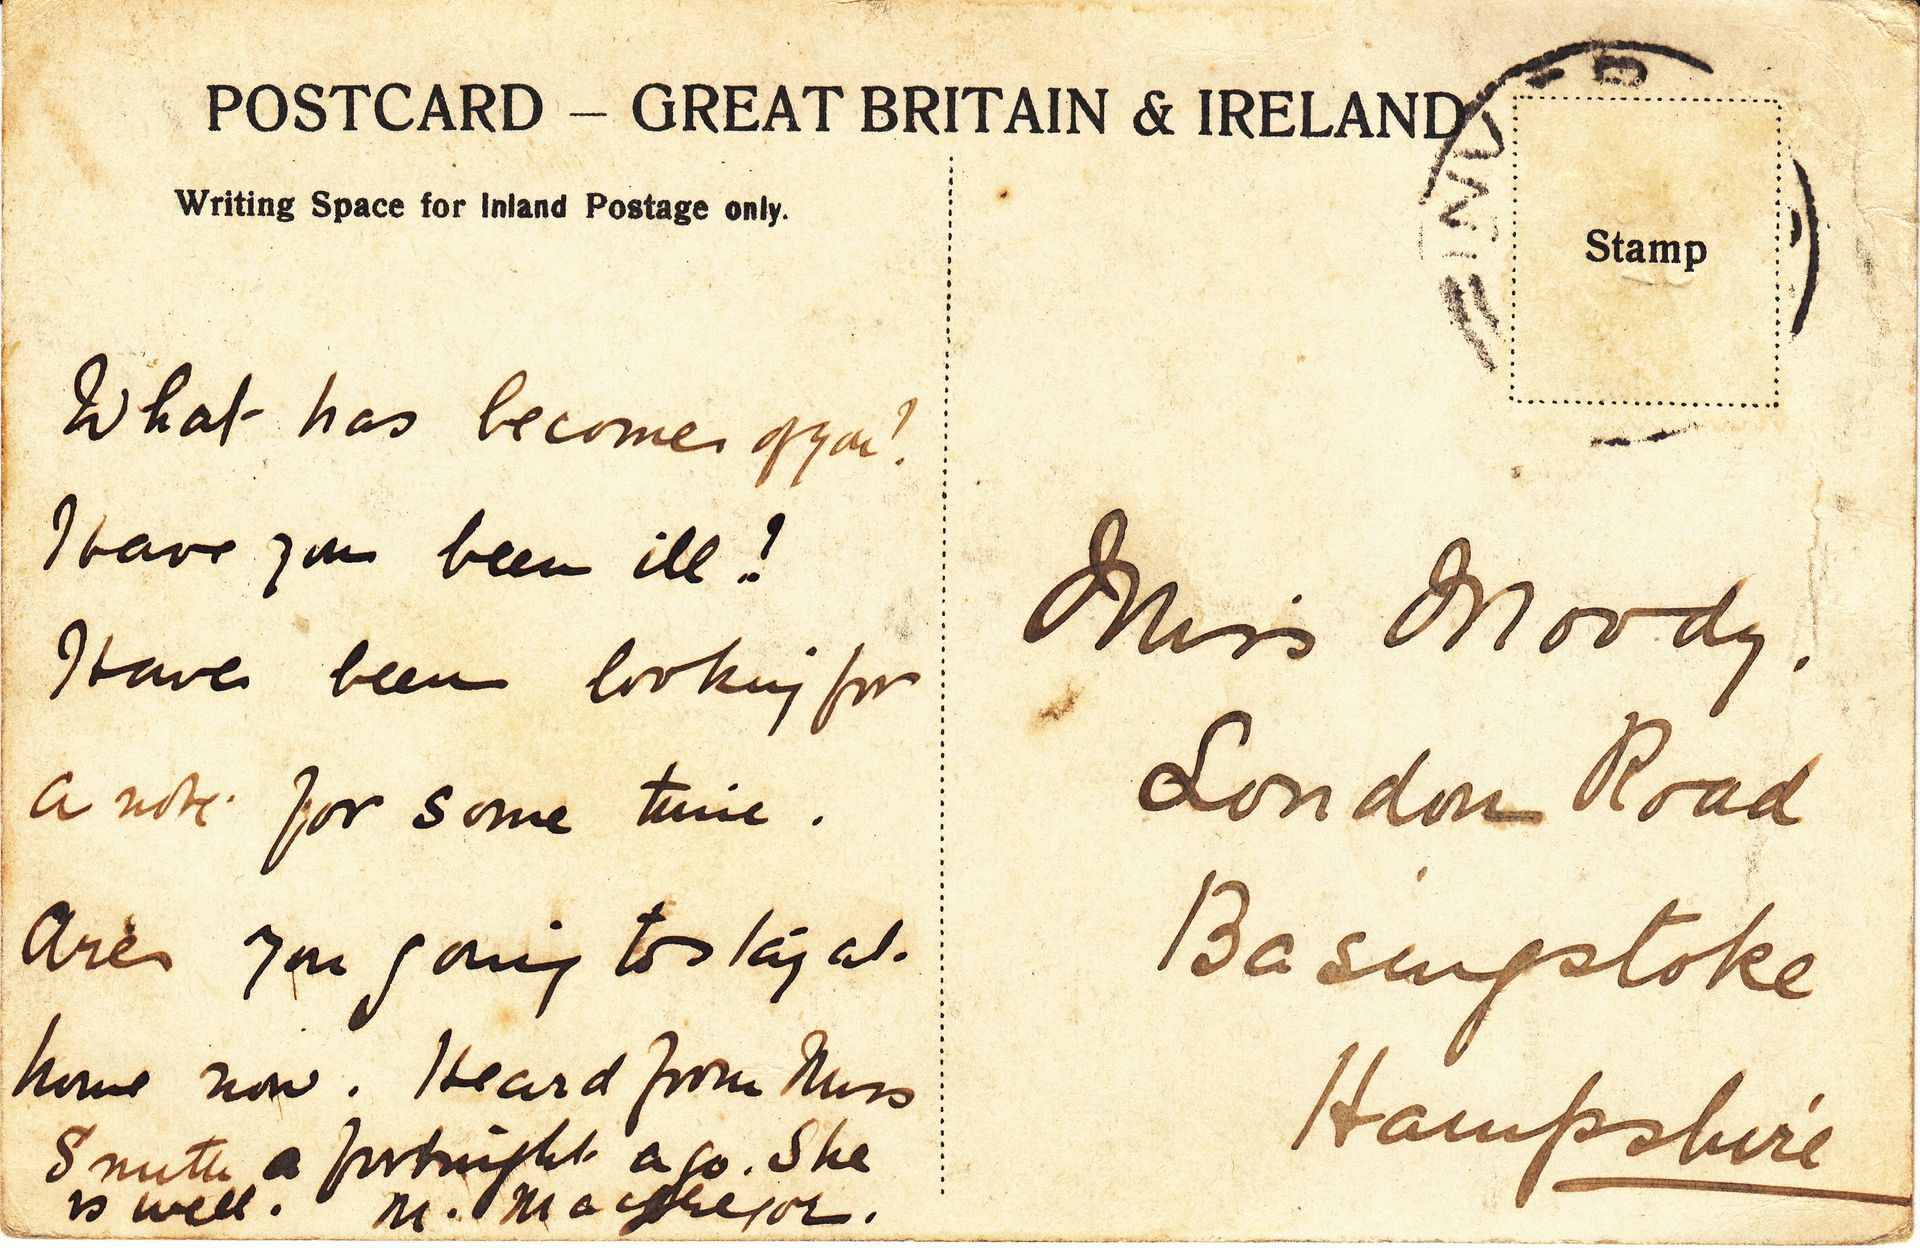 POSTCARD – GREAT BRITAIN & IRELAND
Writing Space for Inland Postage only.
Stamp
What has become of you?
Have you been ill?
Have been looking for
a note for some time.
Are you going to stay at
home now. Heard from Miss
Smith a fortnight ago. She
is well. M. MacGregor.
Miss Moody.
London Road
Basingstoke
Hampshire